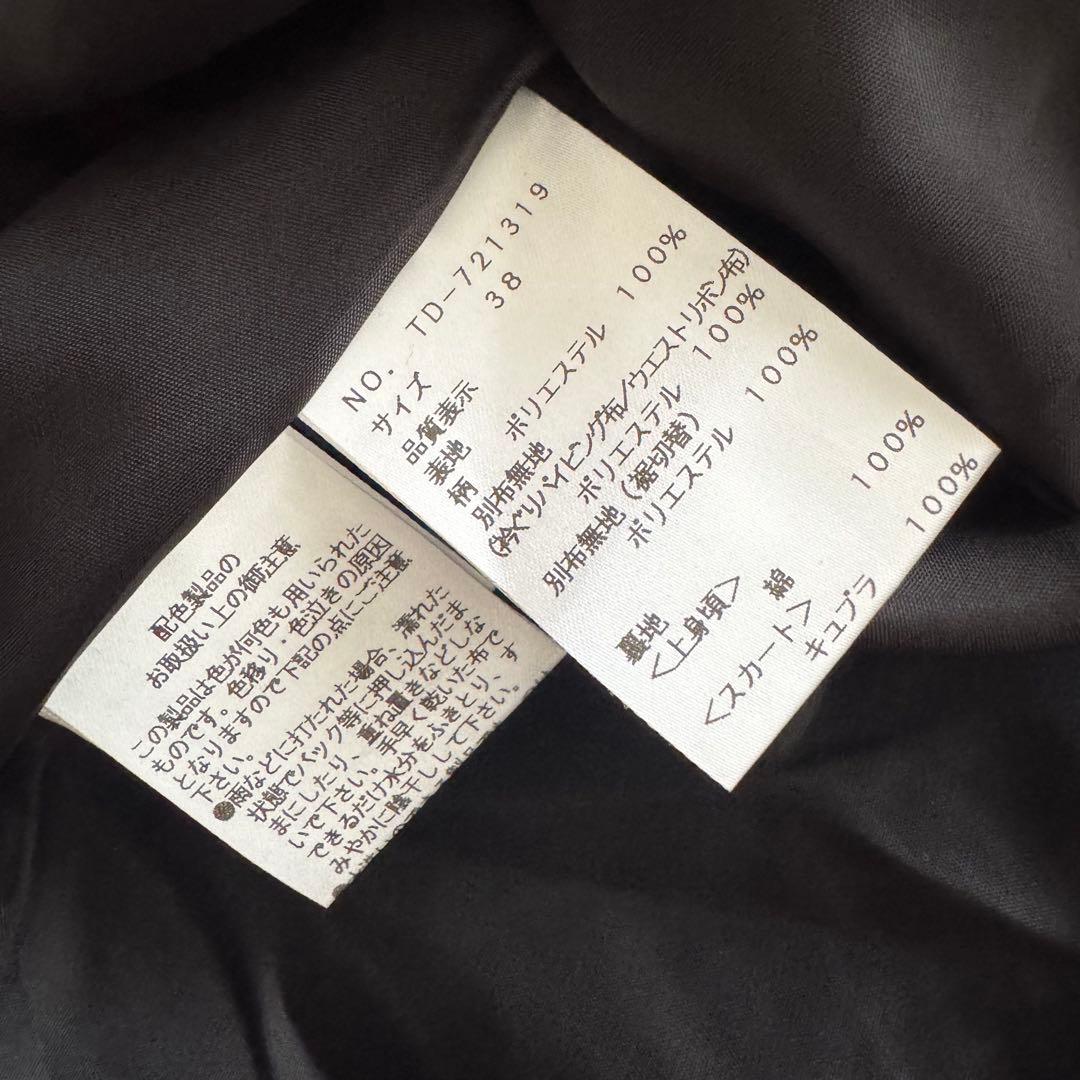 NO. TD-721319
サイズ 38
品質表示
表地
柄 ポリエステル 100%
別布無地
(衿ぐりパイピング布/ウエストリボン布)
ポリエステル 100%
別布無地 (裾切替)
ポリエステル 100%
裏地
<上身頃> 綿 100%
<スカート>
キュプラ 100%
配色製品の
お取扱い上の御注意
この製品は色が何色も用いられた
ものです。色移り・色泣きの原因
となりますので下記の点にご注意
下さい。
●雨などに打たれた場合、濡れた
状態でバッグ等に押し込んだま
まにしたり、重ね置きなどしな
いで下さい。手早く乾いた布で
できるだけ水分をふきとり、す
みやかに陰干しして下さい。